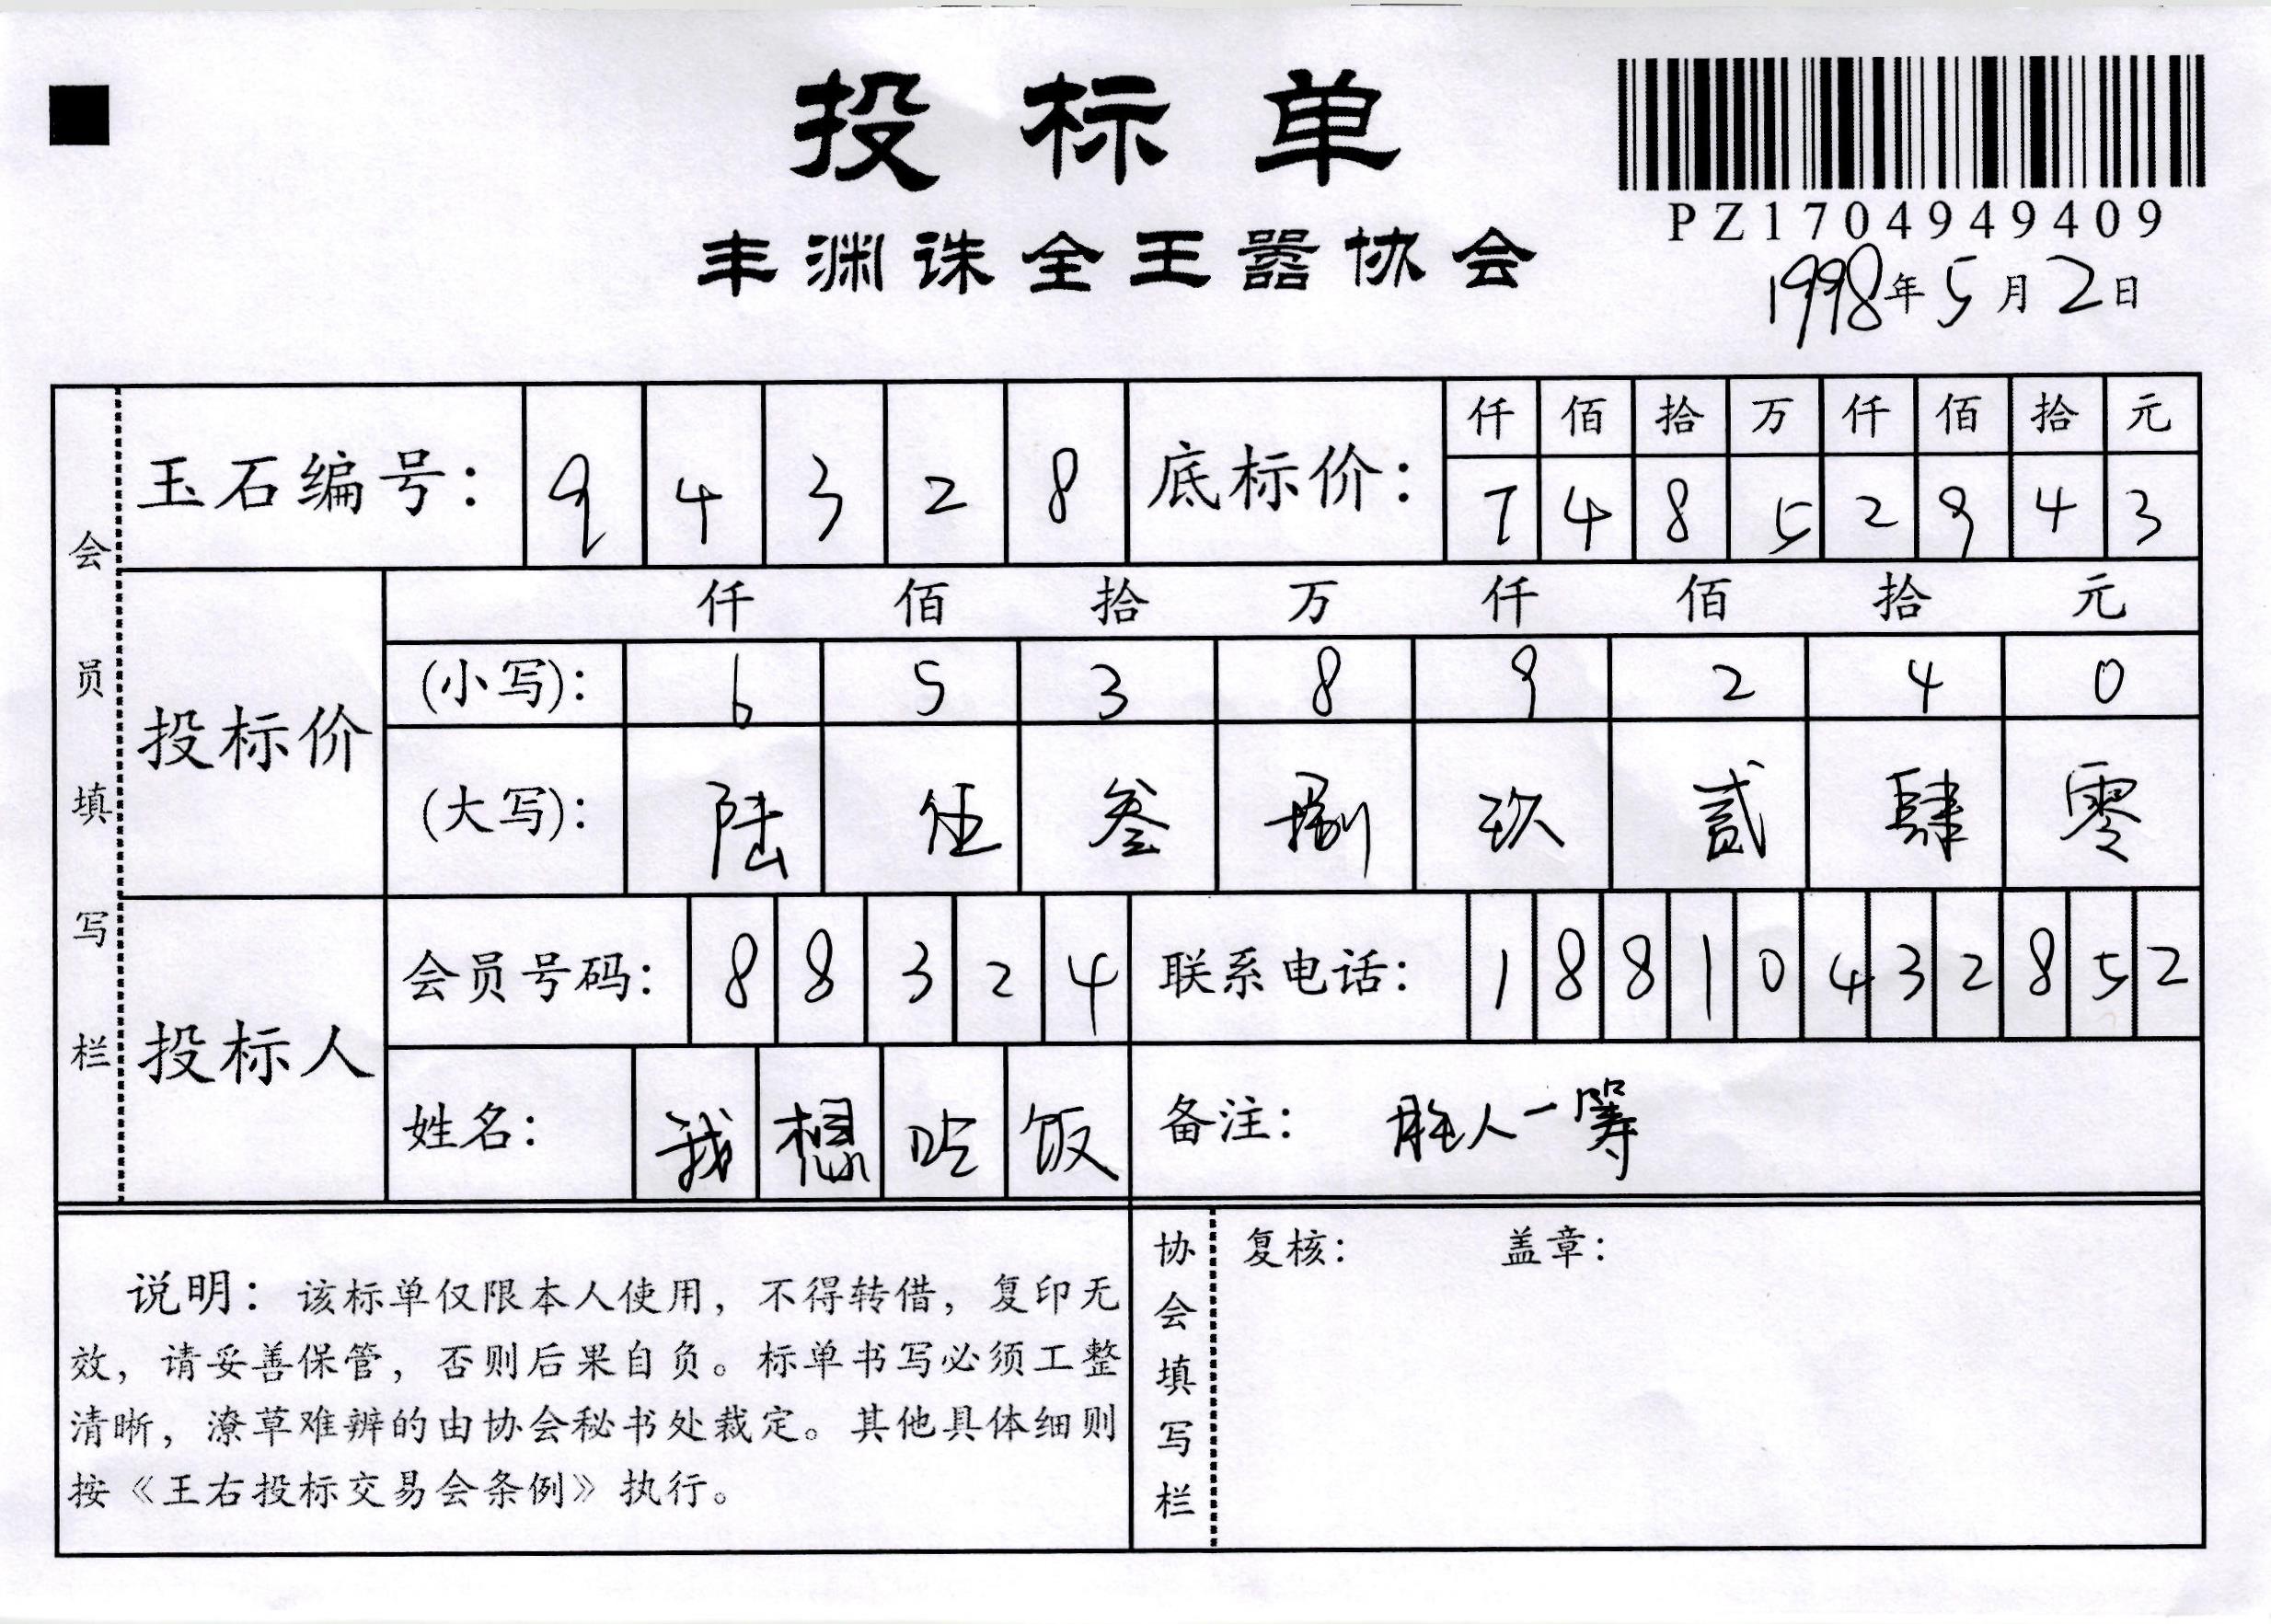 投标单
PZ1704949409
丰渊诛全王嚣协会
1998年5月2日
会员填写栏
玉石编号： 9 4 3 2 8
底标价： 仟 佰 拾 万 仟 佰 拾 元
7 4 8 5 2 9 4 3
投标价
仟 佰 拾 万 仟 佰 拾 元
(小写)： 6 5 3 8 9 2 4 0
(大写)： 陆 伍 叁 捌 玖 贰 肆 零
投标人
会员号码： 8 8 3 2 4
联系电话： 1 8 8 1 0 4 3 2 8 5 2
姓名： 我 想 吃 饭
备注： 胜人一筹
说明：该标单仅限本人使用，不得转借，复印无
效，请妥善保管，否则后果自负。标单书写必须工整
清晰，潦草难辨的由协会秘书处裁定。其他具体细则
按《王右投标交易会条例》执行。
协会填写栏
复核： 盖章：